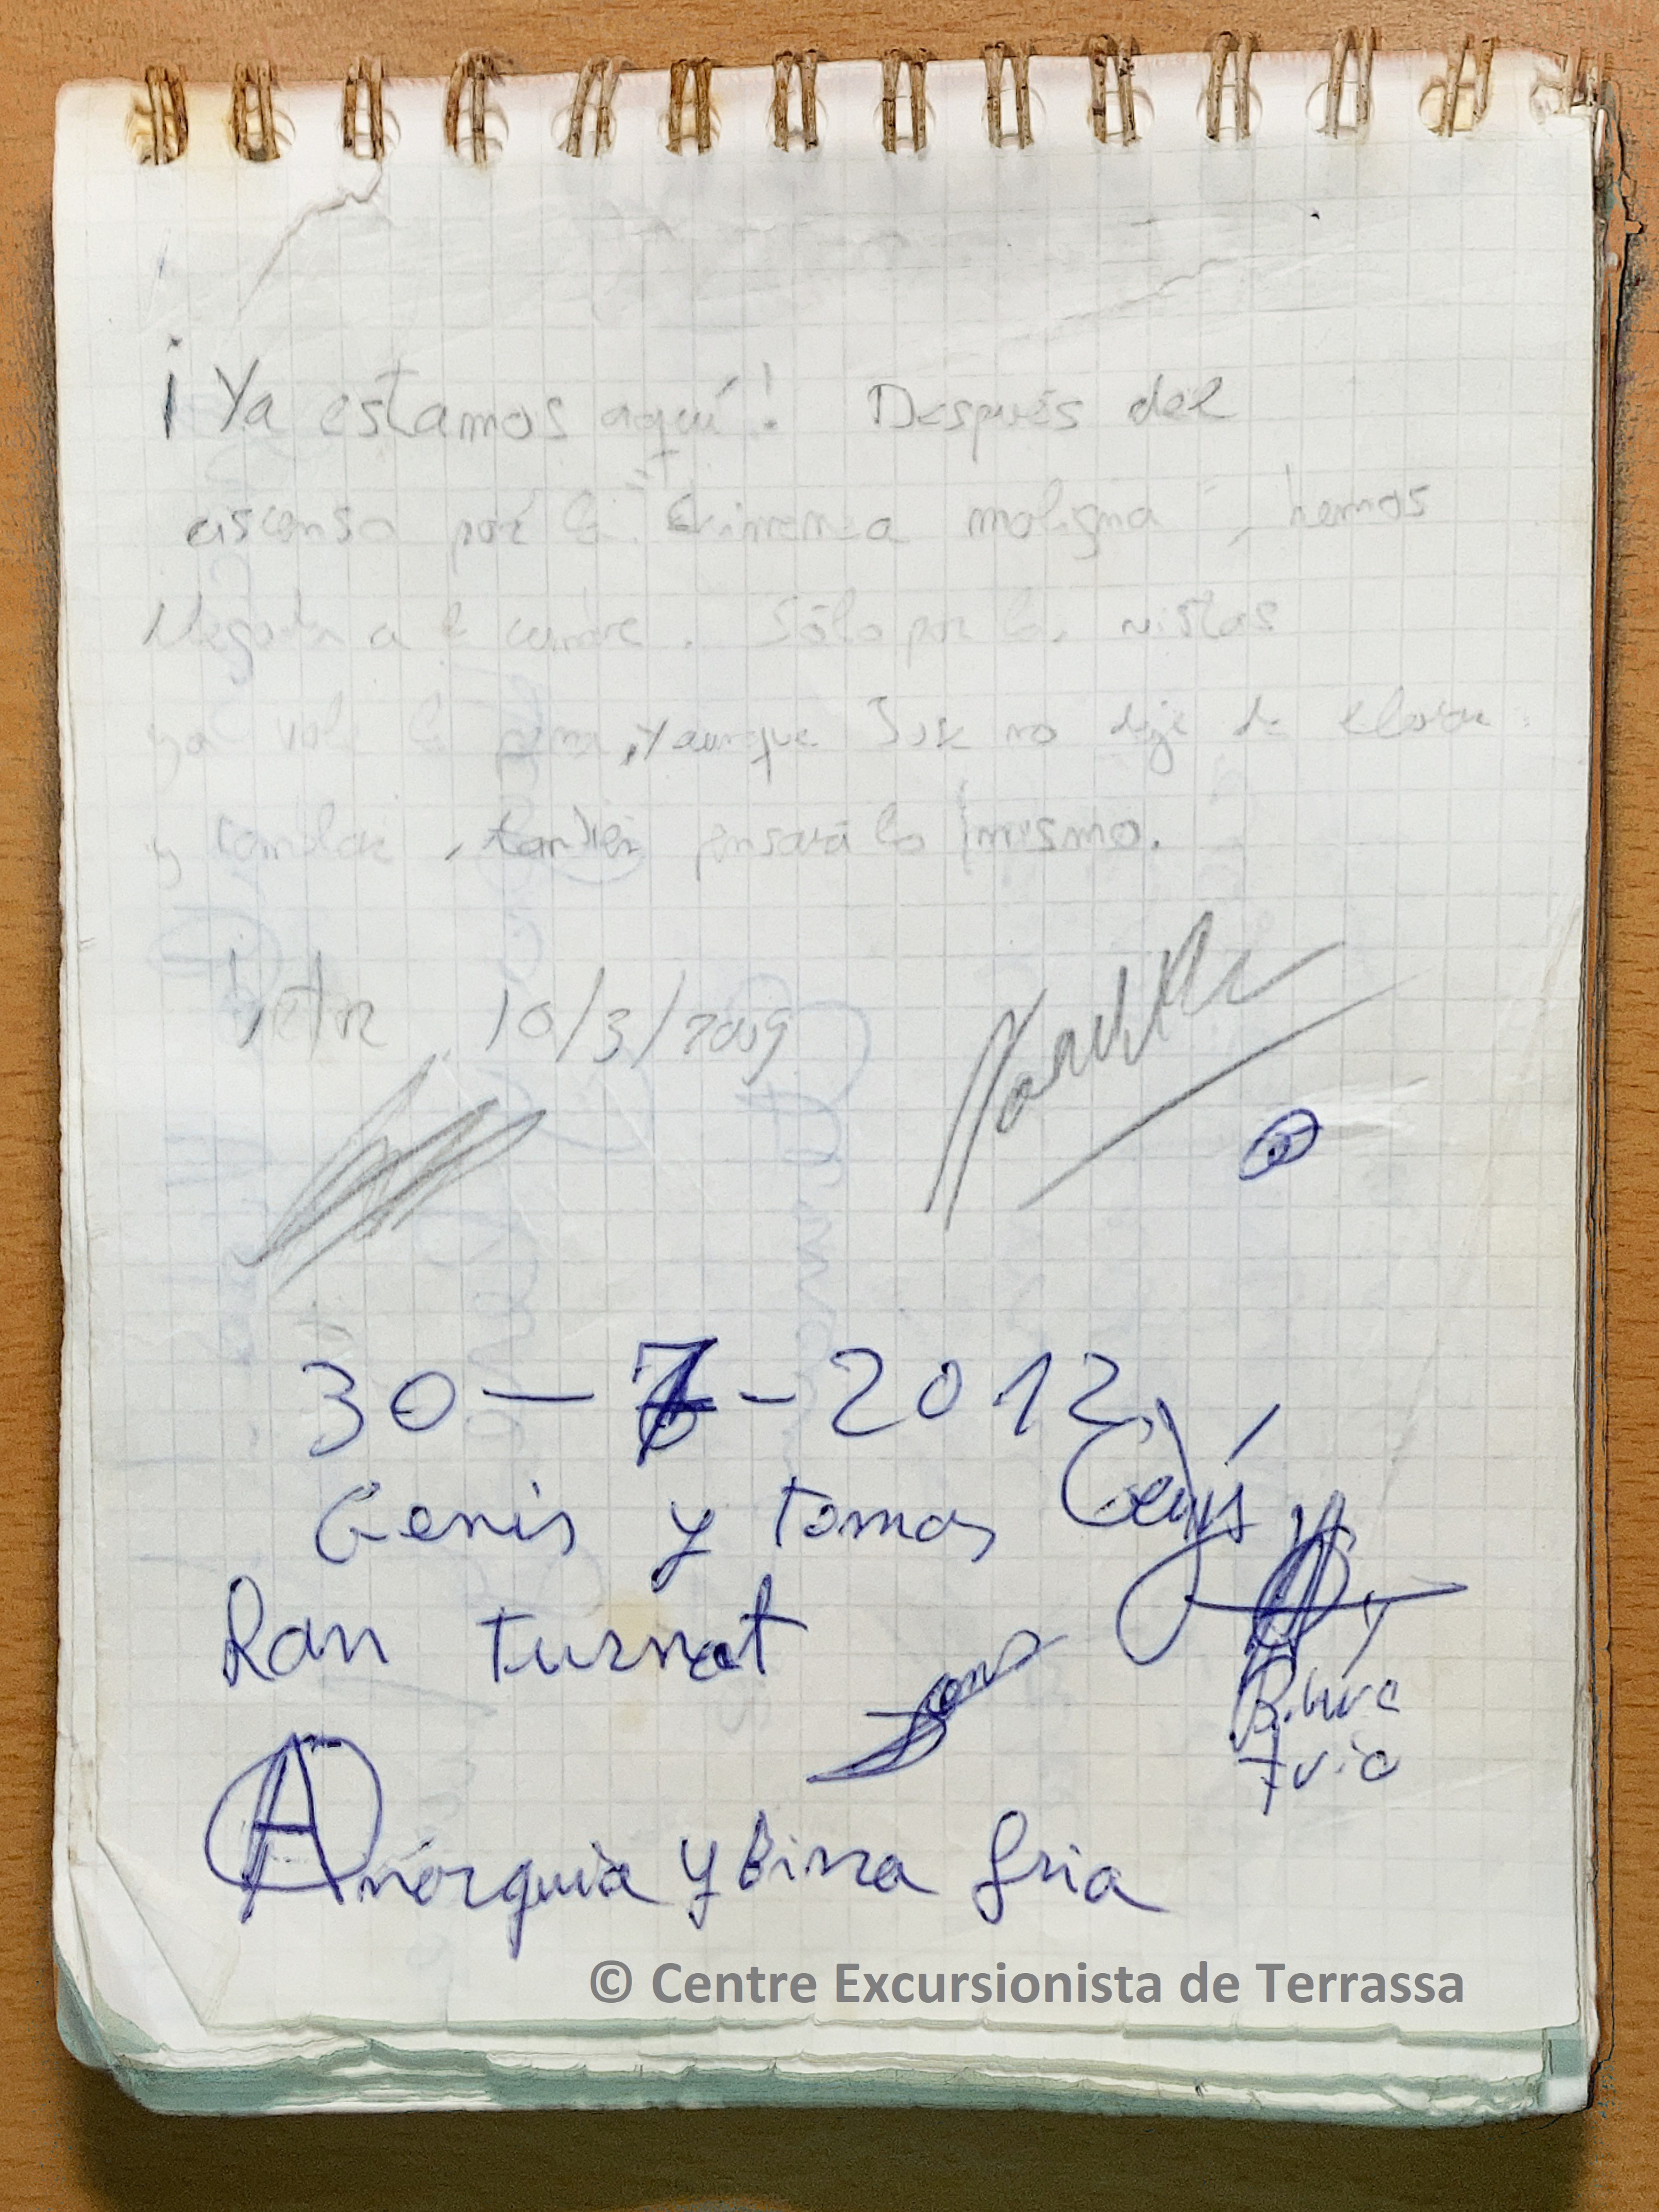 ¡Ya estamos aquí! Después del
ascenso por la "Eximenza maligna", hemos
llegado a la cumbre. Sólo por las vistas
ya vale la pena, y aunque Jose no deje de
y , también pensará lo mismo.
10/3/2009
30-7-2012
Genis y tomas
Ran turnat
Anarquia y Birra fria
© Centre Excursionista de Terrassa